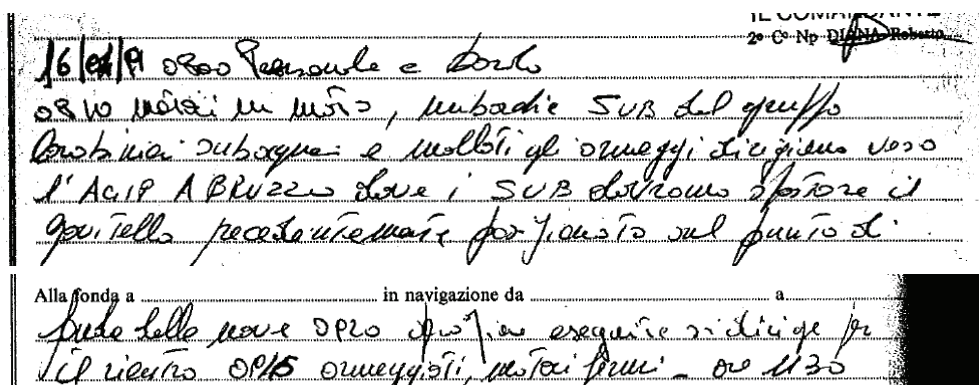 IL COMANDANTE
2° C° Np DIANA Roberto
16/04/91 0800 Personale a bordo
0810 motori in moto, imbarchi SUB del gruppo
Carabinieri subacquei e mollati gli ormeggi dirigiamo verso
l'AGIP ABRUZZO dove i SUB dovranno spostare il
gavitello precedentemente posizionato sul punto di
Alla fonda a in navigazione da a
fonda della nave 0920 operazione eseguite si dirige per
il rientro 0945 ormeggiati, motori fermi - ore 1130